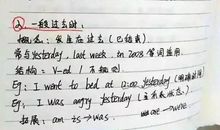 ② 一般过去时:
概念: 发生在过去 (已结束)
常与yesterday, last week, in 2008 等词连用
结构: V-ed / 不规则
Eg: I went to bed at 12:00 yesterday (明确时间)
Eg: I was angry yesterday (表示状态)
拓展: am is → was are → were